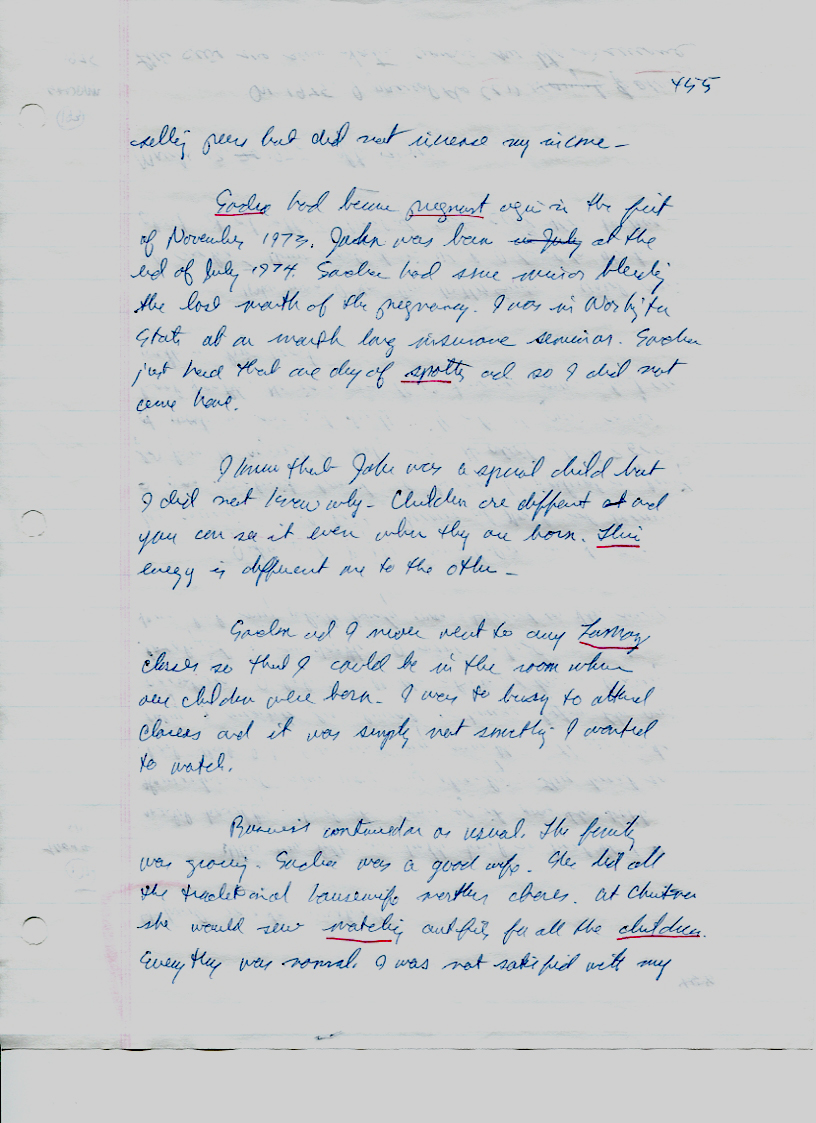 455
selling peers but did not increase my income -
had become pregnant again in the first
of November 1973. John was born in July at the
end of July 1974. had some minor bleeding
the last month of the pregnancy. I was in Washington
State at a month long insurance seminar.
just had that one day of spotting and so I did not
come home.
I knew that John was a special child but
I did not know why - Children are different at and
you can see it even when they are born. Their
energy is different one to the other -
and I never went to any Lamaze
classes so that I could be in the room when
our children were born. I was to busy to attend
classes and it was simply not something I wanted
to watch.
Business continued on as usual. The family
was growing. was a good wife. She did all
the traditional housewife mother chores. At Christmas
she would sew matching outfits for all the children.
Everything was normal. I was not satisfied with my